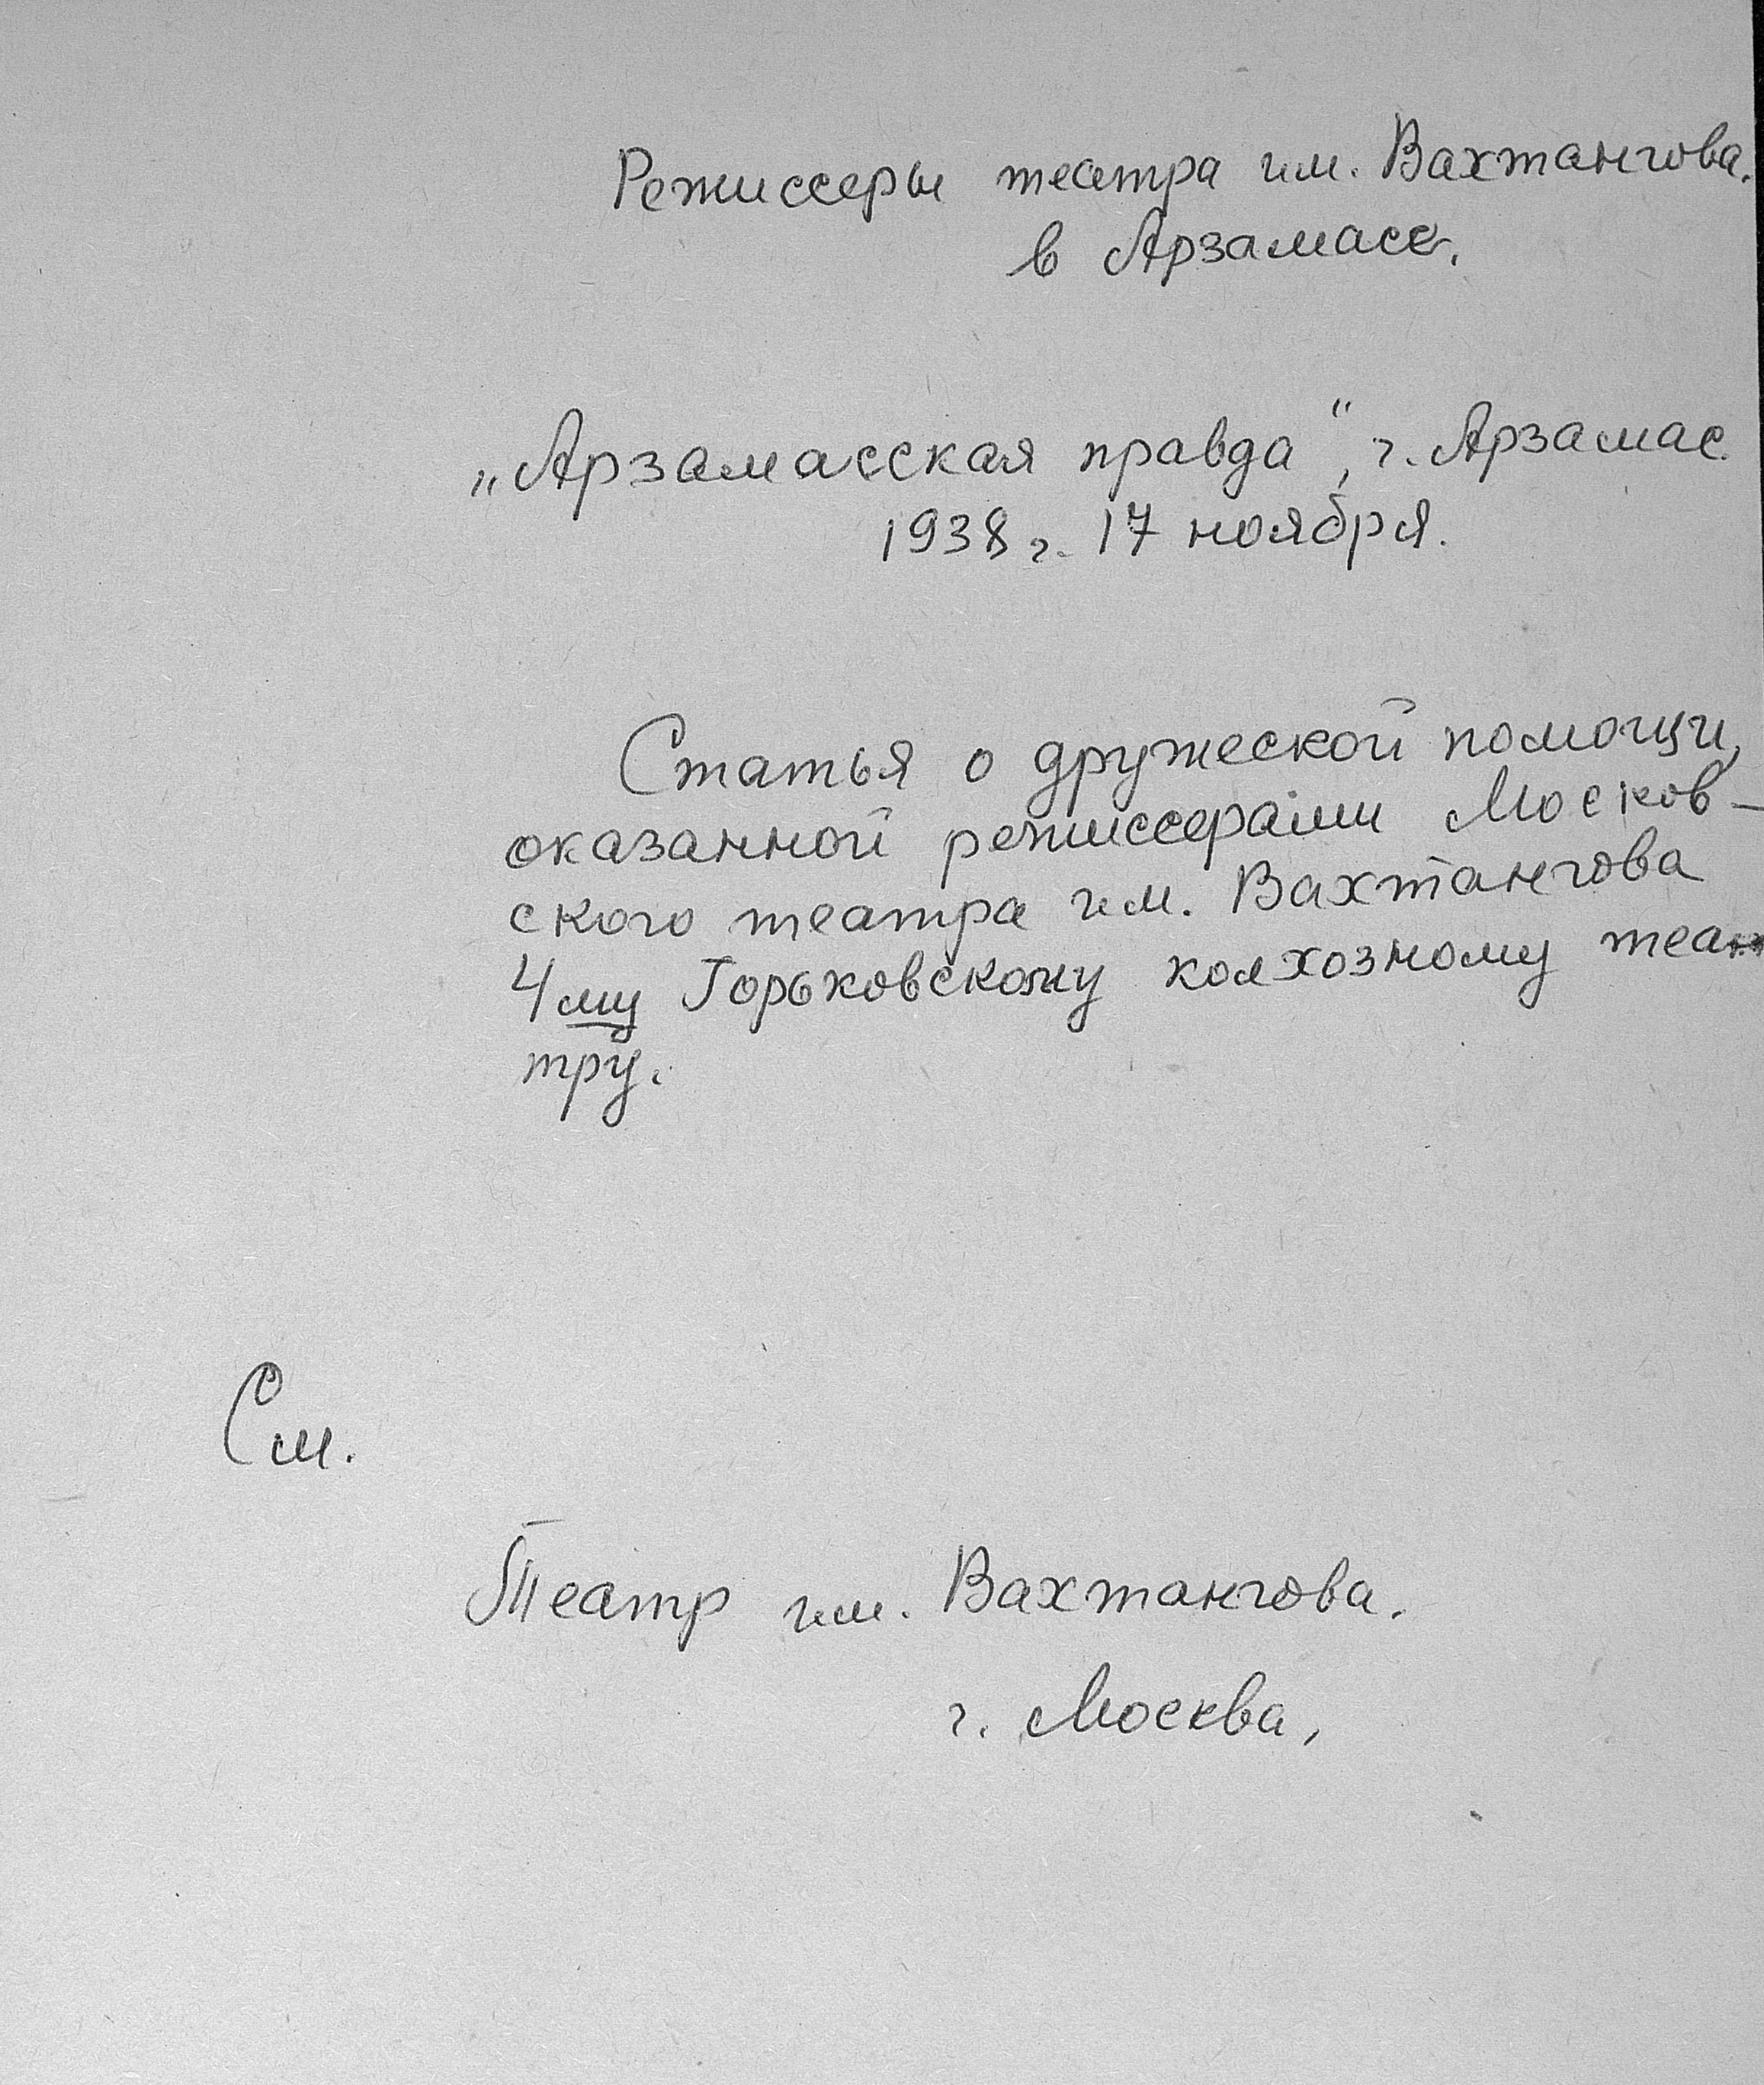 Режиссеры театра им. Вахтангова.
в Арзамасе.
„Арзамасская правда“, г. Арзамас.
1938 г. 17 ноября.
Статья о дружеской помощи,
оказанной режиссерами Москов-
ского театра им. Вахтангова
4му Горьковскому колхозному теа-
тру.
См.
Театр им. Вахтангова.
г. Москва,